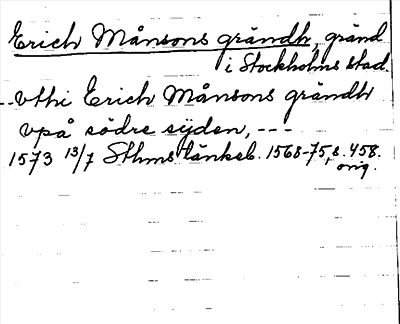 Erich Månsons grändh, gränd
i Stockholms stad.
--vthi Erich Månsons grändh
vpå södre sijden, ---
1573 13/7 Sthms tänkeb. 1568-75, s. 458.
orig.